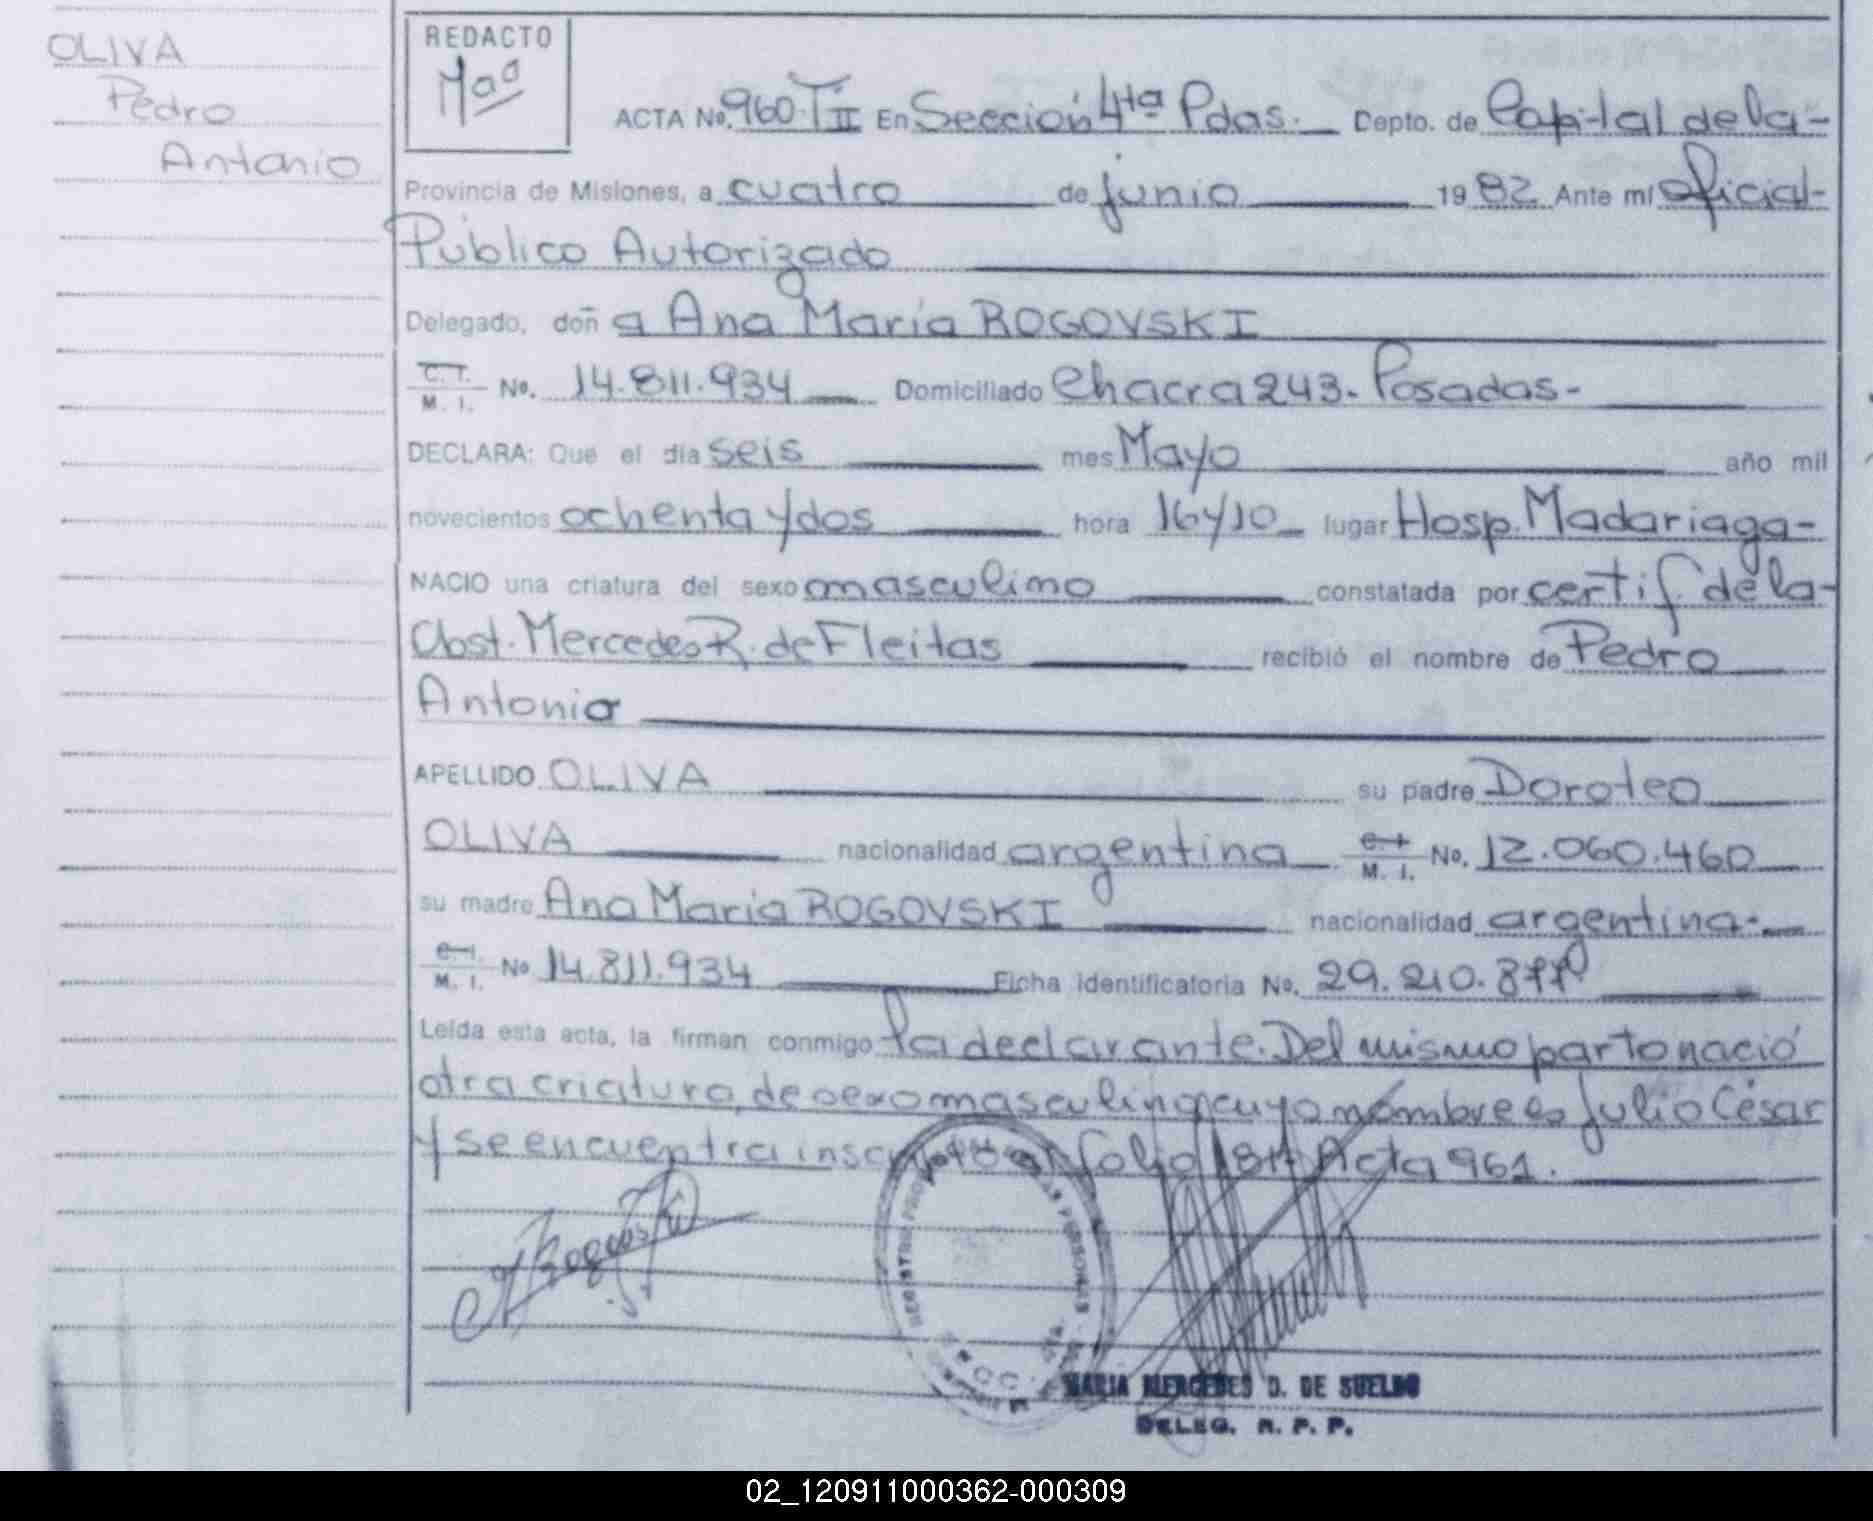 OLIVA
Pedro
Antonio
REDACTO
Mªª
ACTA No. 960·T II En Sección 4ta Pdas. Depto. de Capital de la-
Provincia de Misiones, a cuatro de junio 1982 Ante mí Oficial-
Público Autorizado
Delegado, doña Ana María ROGOVSKI
C. I. M. I. No. 14.811.934 Domiciliado Chacra 243. Posadas-
DECLARA: Que el día seis mes Mayo año mil
novecientos ochenta y dos hora 16 y 10 lugar Hosp. Madariaga-
NACIO una criatura del sexo masculino constatada por certif. de la-
Obst. Mercedes R. de Fleitas recibió el nombre de Pedro
Antonio
APELLIDO OLIVA su padre Doroteo
OLIVA nacionalidad argentina C. I. M. I. No. 12.060.460
su madre Ana María ROGOVSKI nacionalidad argentina.-
C. I. M. I. No 14.811.934 Ficha identificatoria No. 29.210.877
Leída esta acta, la firman conmigo la declarante. Del mismo parto nació
otra criatura, de sexo masculino, cuyo nombre es Julio César
y se encuentra inscripto en folio Acta 961.
MARIA MERCEDES D. DE SUELDO
DELEG. R. P. P.
02_120911000362-000309